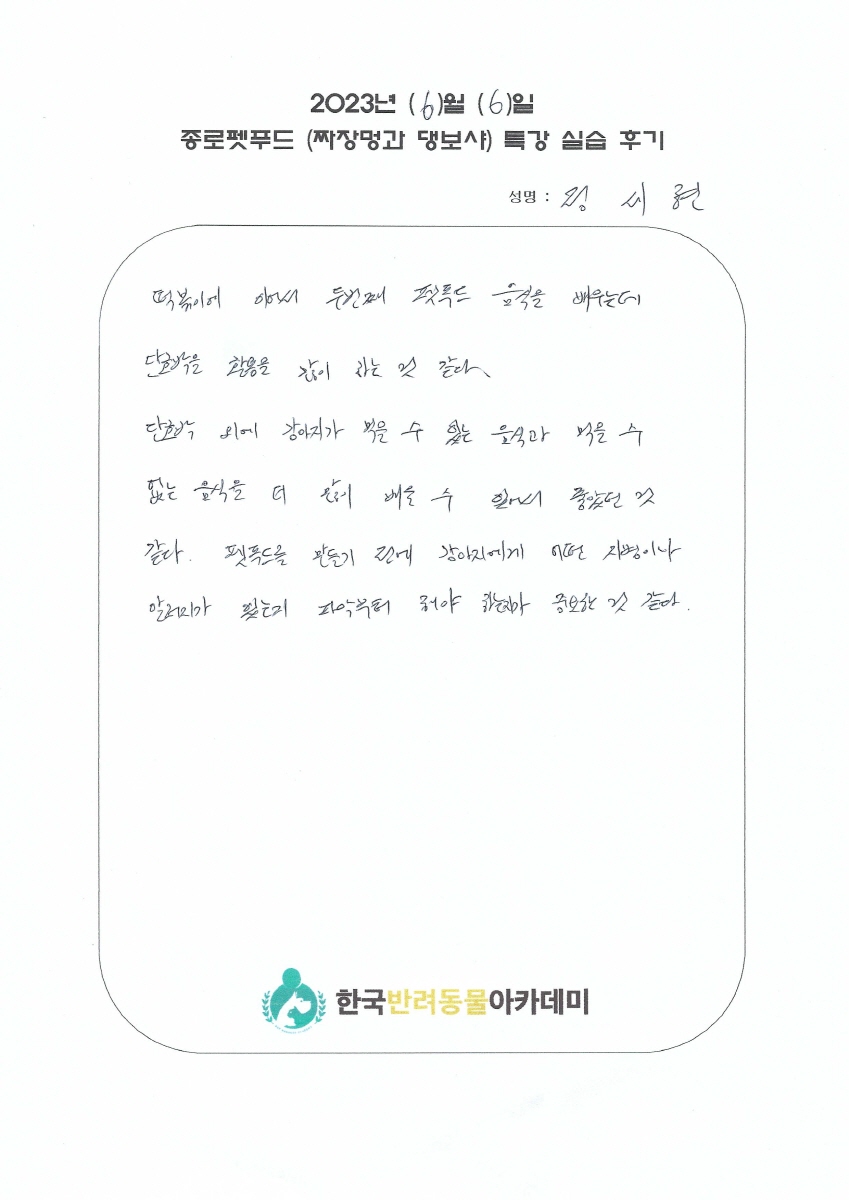 2023년 (6)월 (6)일
종로펫푸드 (짜장멍과 댕보샤) 특강 실습 후기
성명 : 정 세 련
떡볶이에 이어서 두번째 펫푸드 음식을 배우는데
단호박을 활용을 많이 하는 것 같다.
단호박 외에 강아지가 먹을 수 있는 음식과 먹을 수
없는 음식을 더 많이 배울 수 있어서 좋았던 것
같다. 펫푸드를 만들기 전에 강아지에게 어떤 지병이나
알러지가 있는지 파악부터 해야 하는지가 중요한 것 같다.
한국반려동물아카데미